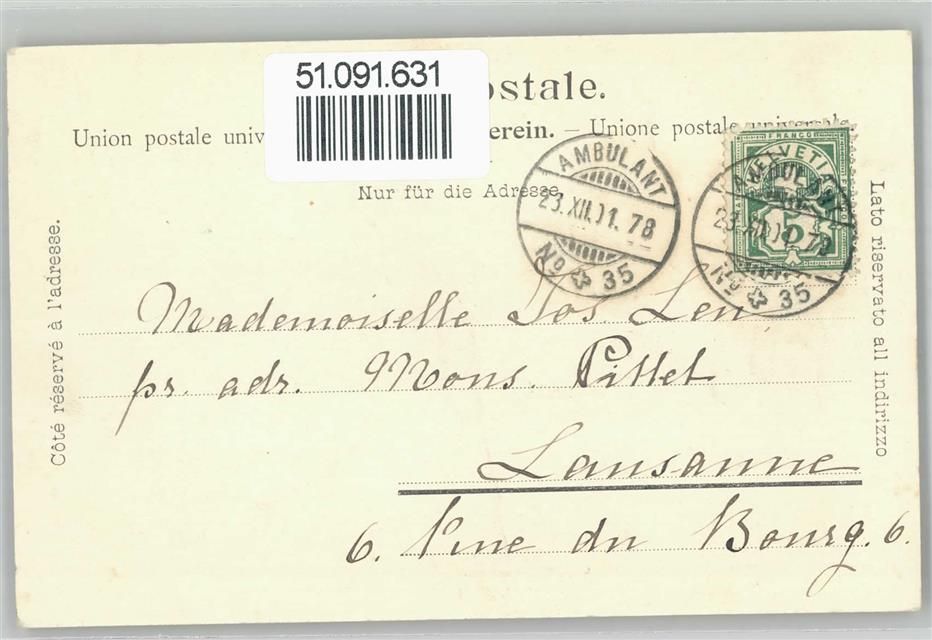 51.091.631
ostale.
Union postale univ erein. – Unione postale universale.
Nur für die Adresse
Côté réservé à l'adresse.
Lato riservato all indirizzo
AMBULANT
23.XII.01. 78
No 35
FRANCO
HELVETIA
5
AMBULANT
23.XII.01. 78
No 35
Mademoiselle Jos. Leu
pr. adr. Mons. Pittet
Lausanne
6. Rue du Bourg. 6.